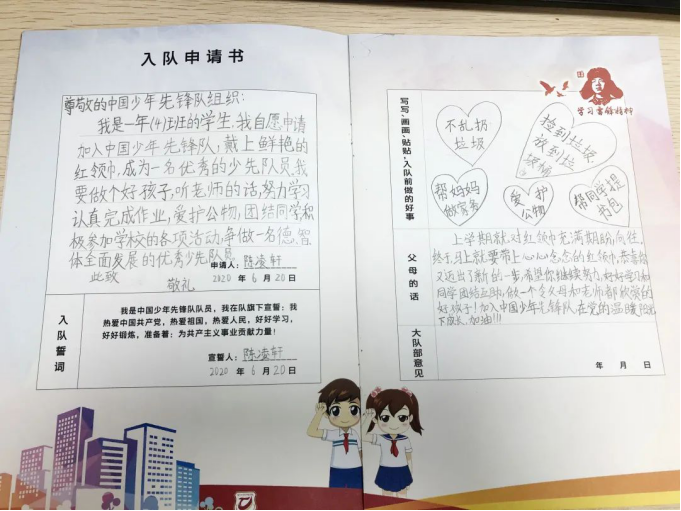 入队申请书
尊敬的中国少年先锋队组织：
我是一年(4)班的学生,我自愿申请
加入中国少年先锋队,戴上鲜艳的
红领巾,成为一名优秀的少先队员,我
要做个好孩子,听老师的话,努力学习
认真完成作业,爱护公物,团结同学,积
极参加学校的各项活动,争做一名德、智
体全面发展的优秀少先队员
申请人：陈凌轩
此致
敬礼
2020 年 6 月 20 日
入队誓词
我是中国少年先锋队队员，我在队旗下宣誓：我
热爱中国共产党，热爱祖国，热爱人民，好好学习，
好好锻炼，准备着：为共产主义事业贡献力量！
宣誓人：陈凌轩
2020 年 6 月 20 日
学习雷锋榜样
写写、画画、贴贴，入队前做的好事
不乱扔
垃圾
捡到垃圾
放到垃
圾桶
帮妈妈
做家务
爱护
公物
帮同学提
书包
父母的话
上学期就对红领巾充满期盼,向往,
终于,马上就要带上心心念念的红领巾,恭喜你
又迈出了新的一步,希望你继续努力,好好学习和
同学团结互助,做一个令父母和老师都欣赏的
好孩子!加入中国少年先锋队在党的温暖阳光
下成长,加油!!!
大队部意见
年 月 日